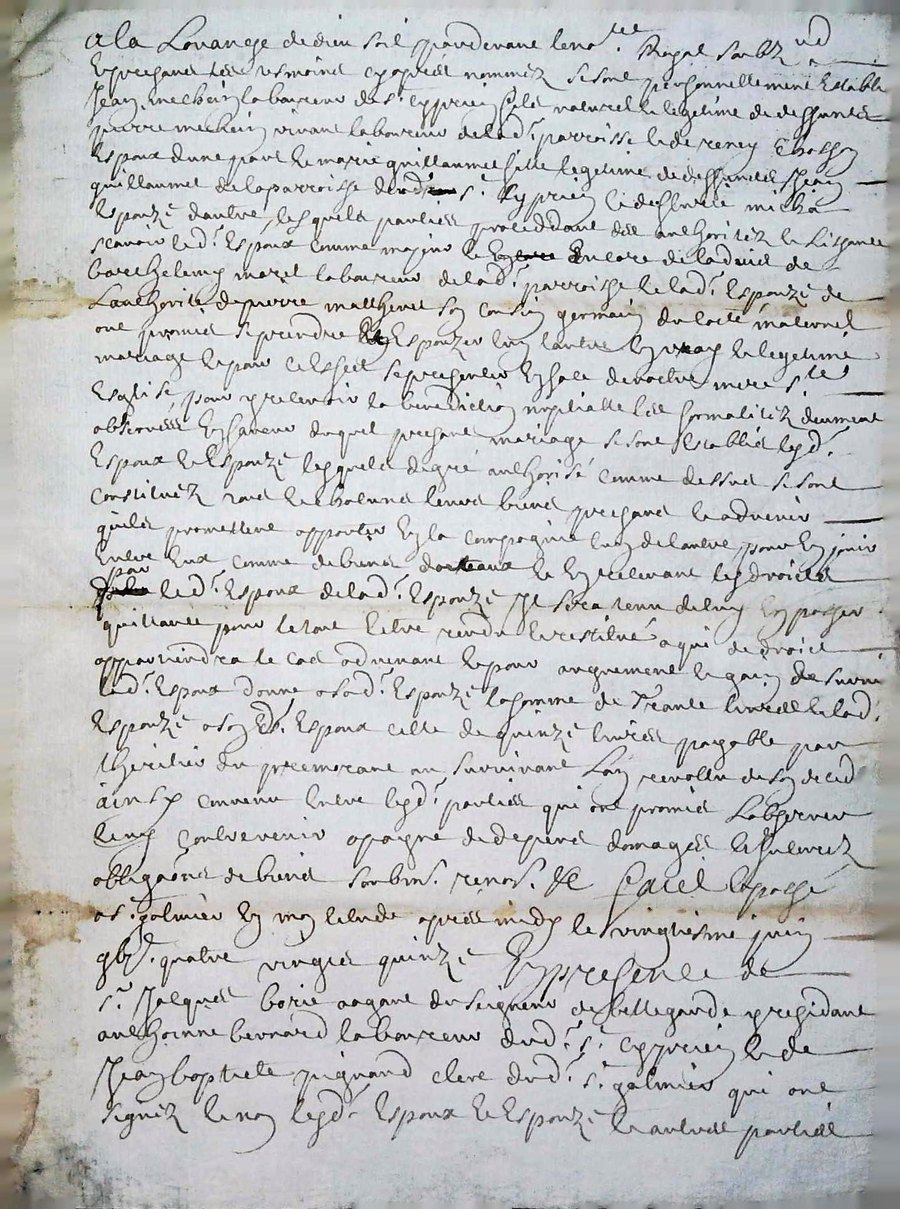 A la Louange de dieu soit pardevant le no.re Royal soubz.né
Et presans les tesmoins cyapres nommez se sont personnellement Establis
Jean mechin laboureur de s.t Cyprien fils naturel et legitime de deffuncts
pierre mechin vivant laboureur de lad.t parroisse et de reney
Espoux dune part Et marie guillaumet fille legitime de deffuncts Jean
guillaumet de la parroisse dud s.t Cyprien et de fleurie micha
Espouze dautre, lesquels parties proceddant des authoritez et Licsance
scavoir led.t Espoux comme majeur et Encore de ladvis de
barthelemy morel laboureur de lad.t parroisse et lad.t Espouze de
Lauthorite de pierre matthevet son cousin germain du coste maternel
ont promis se prendre Et Espouzer lun lautre En vray et legitime
mariage et pour cet Effect se presenter En face de nostre mere s.te
Esglise pour y recevoir la benediction nuptialle les formalitez deument
observées En faveur duquel presant mariage se sont Establis lesd.t
Espoux et Espouze lesquels de gré authorisé comme dessus se sont
constituez tous et chacuns leurs biens presans et advenir
quils promettent apporter En la compagnie lun de lautre pour En jouir
Entre Eux comme de biens dotteaux et En recevant les droicts
par led.t Espoux de lad.t Espouze Il sera tenu de luy En passer
quittance pour le tout Estre rendu et restitué a qui de droict
appartiendra le cas advenant Et pour augmement et gain de survie
led.t Espoux donne a sad.t Espouze la somme de trante livres et lad.t
Espouze a son d.t Espoux celle de quinze livres payable par
lheritier du premorant au survivant Lan revollu de son deced
ainsy convenu Entre lesd.t parties qui ont promis Lobserver
sans contrevenir a payne de depens domages et interestz
obligaons de biens soubms. renos. &c faict Et passé
a s.t galmier En mon Estude apres midy le vingtiesme juin
gbz.t quatre vingts quinze En presence de
s.r Jacques borie agant du seigneur de bellegarde y residant
anthoinne bernard laboureur dud.t s.t Cyprien et de
Jean baptiste pignard clerc dud.t s.t galmier qui ont
signez et non lesd.t Espoux et Espouze et autres parties